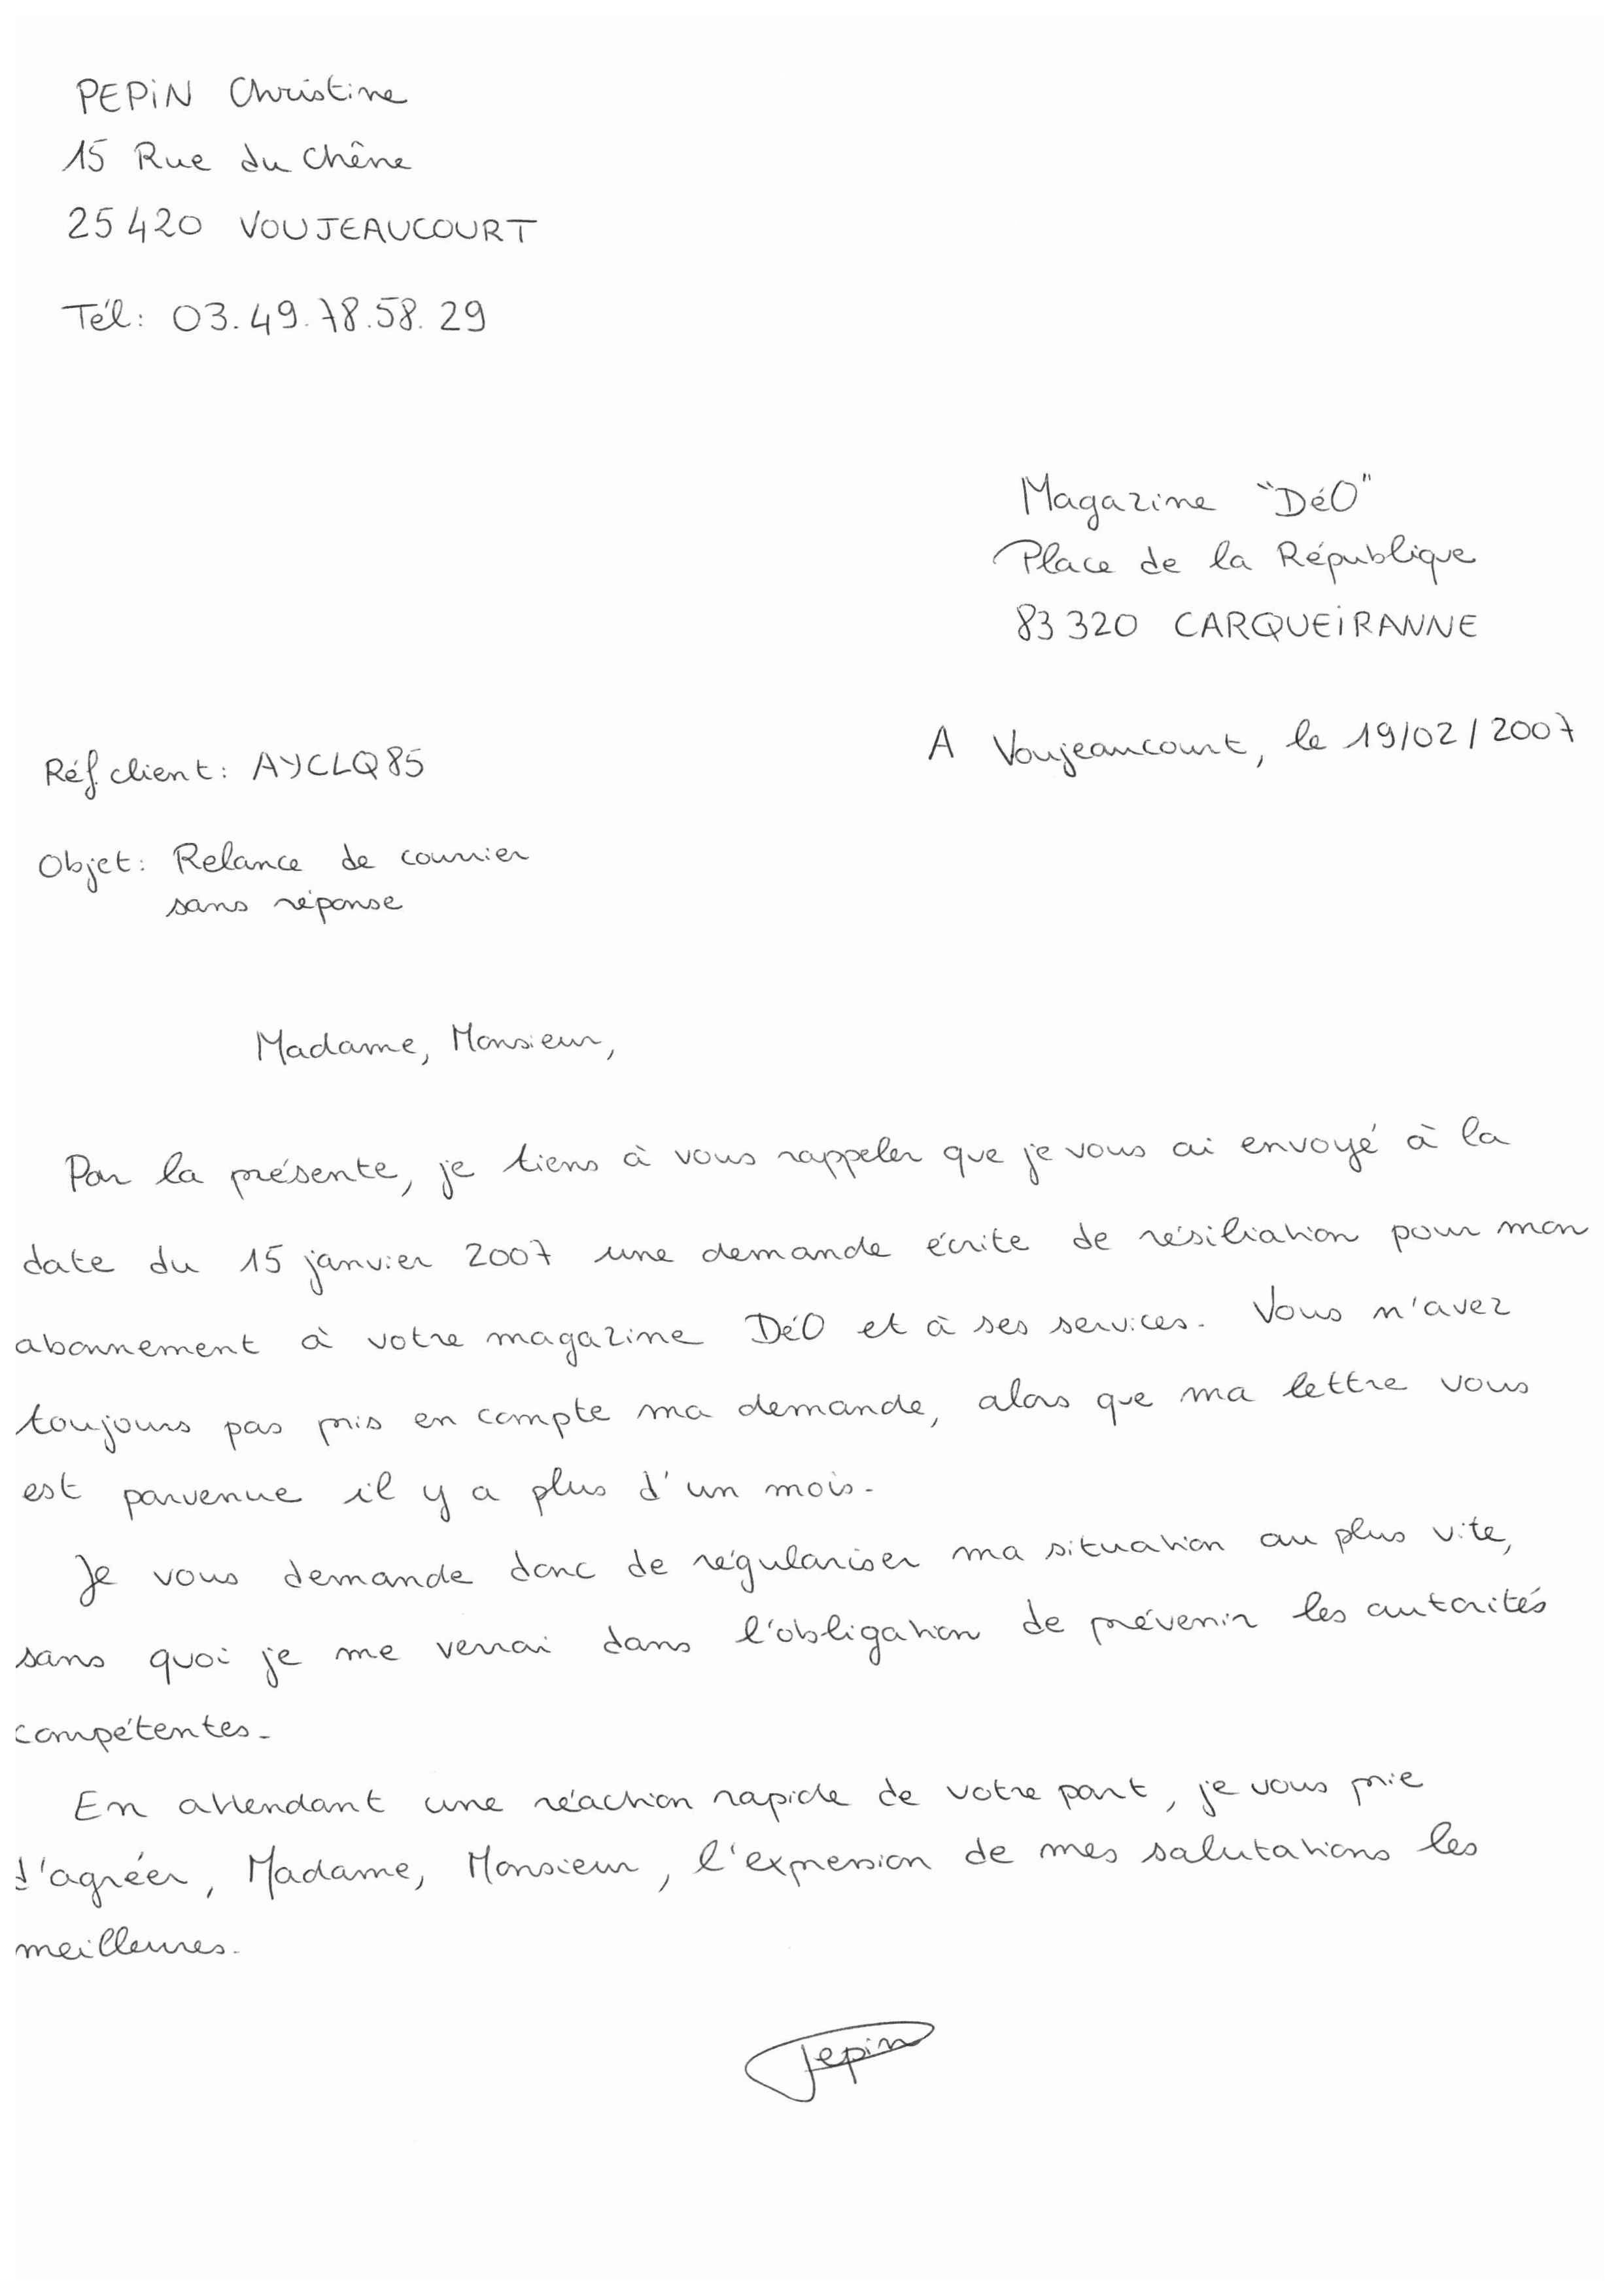 PEPIN Christine
15 Rue du Chêne
25 420 VOUJEAUCOURT
Tél: 03.49.78.58.29
Magazine "DéO"
Place de la République
83 320 CARQUEIRANNE
A Voujeaucourt, le 19/02/2007
Réf client: AYCLQ85
Objet: Relance de courrier
sans réponse
Madame, Monsieur,
Par la présente, je tiens à vous rappeler que je vous ai envoyé à la
date du 15 janvier 2007 une demande écrite de résiliation pour mon
abonnement à votre magazine DéO et à ses services. Vous n'avez
toujours pas pris en compte ma demande, alors que ma lettre vous
est parvenue il y a plus d'un mois.
Je vous demande donc de régulariser ma situation au plus vite,
sans quoi je me verrai dans l'obligation de prévenir les autorités
compétentes.
En attendant une réaction rapide de votre part, je vous prie
d'agréer, Madame, Monsieur, l'expression de mes salutations les
meilleures.
Pepin